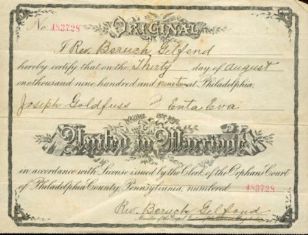 No. 483728
ORIGINAL
I Rev. Boruch Gelfend
hereby certify that on the Thirty day of August
one thousand nine hundred and nineteen at Philadelphia,
Joseph Goldfuss and Enta Eva
United in Marriage
in accordance with License issued by the Clerk of the Orphans Court
of Philadelphia County, Pennsylvania, numbered 483728
Rev. Boruch Gelfand